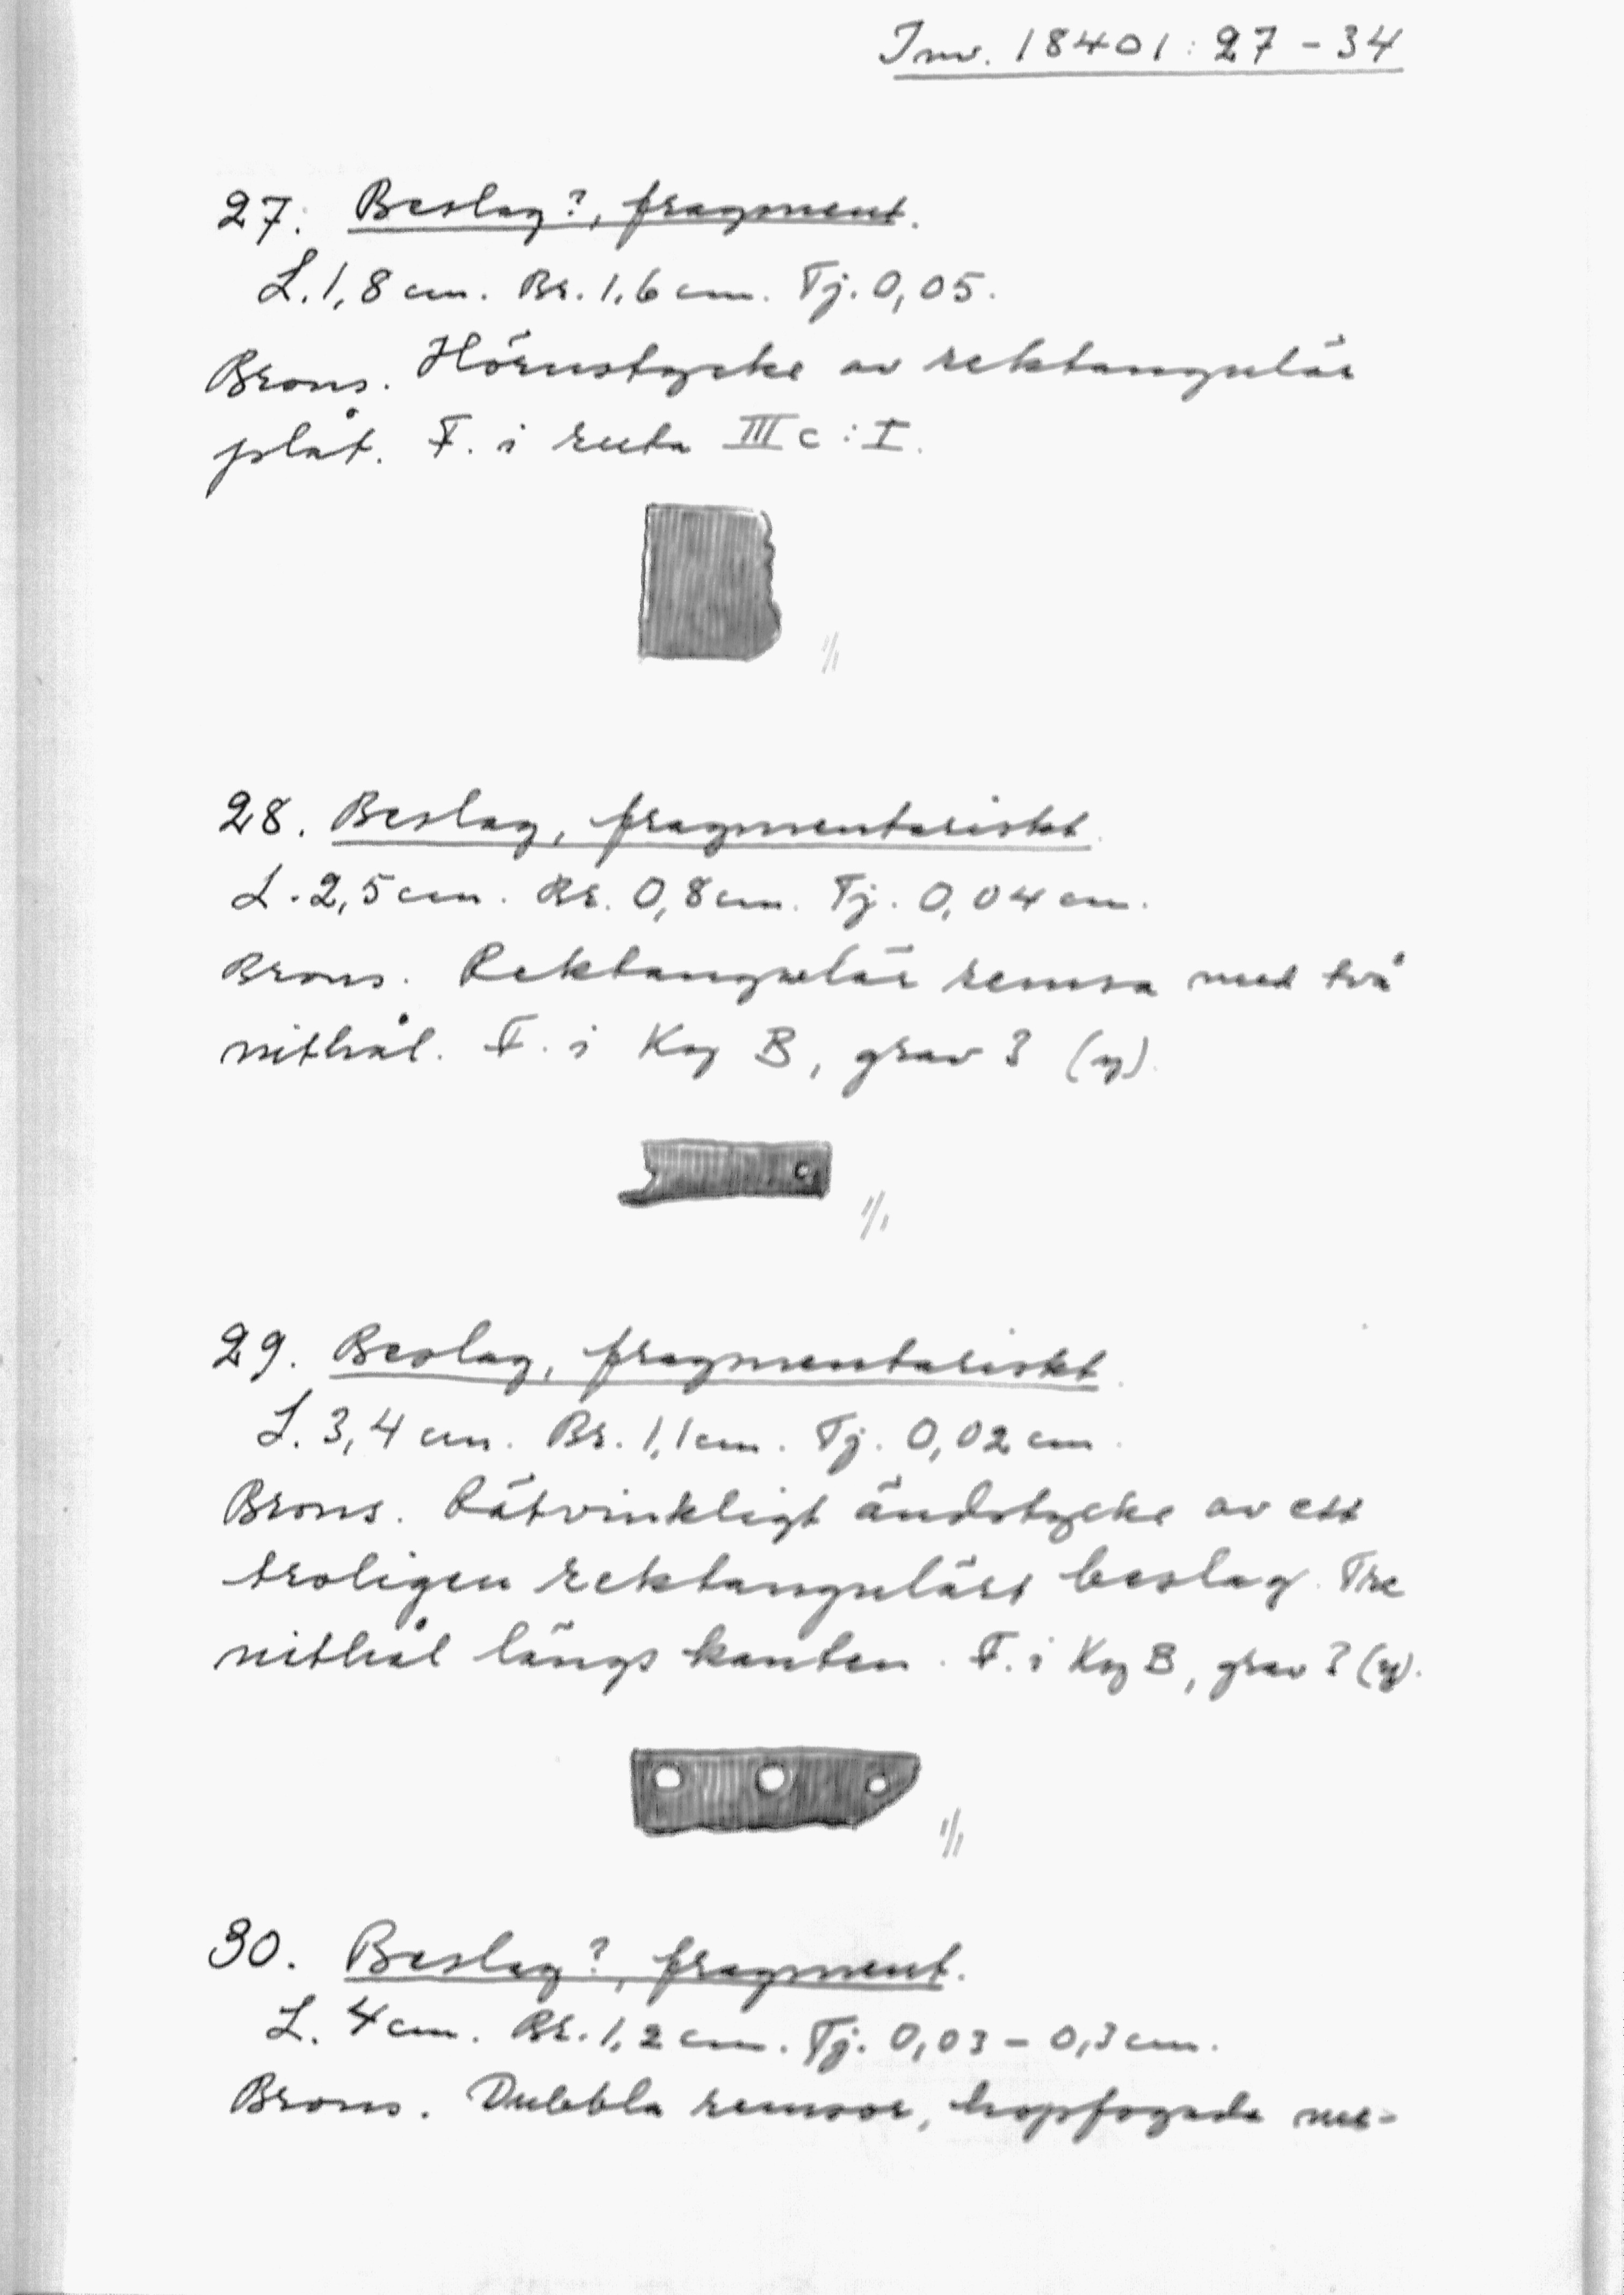 Inv. 18401:27-34
27. Beslag?, fragment.
L. 1,8 cm. Br. 1,6 cm. Tj. 0,05.
Brons. Hörnstycke av rektangulär
plåt. F. i ruta III c : I.
1/1
28. Beslag, fragmentariskt.
L. 2,5 cm. Br. 0,8 cm. Tj. 0,04 cm.
Brons. Rektangulär remsa med två
nithål. F. i Kg B, grav 3 (y).
1/1
29. Beslag, fragmentariskt.
L. 3,4 cm. Br. 1,1 cm. Tj. 0,02 cm.
Brons. Rätvinkligt ändstycke av ett
troligen rektangulärt beslag. Tre
nithål längs kanten. F. i Kg B, grav 3 (y).
1/1
30. Beslag?, fragment.
L. 4 cm. Br. 1,2 cm. Tj. 0,03 - 0,3 cm.
Brons. Dubbla remsor, hopfogade me-